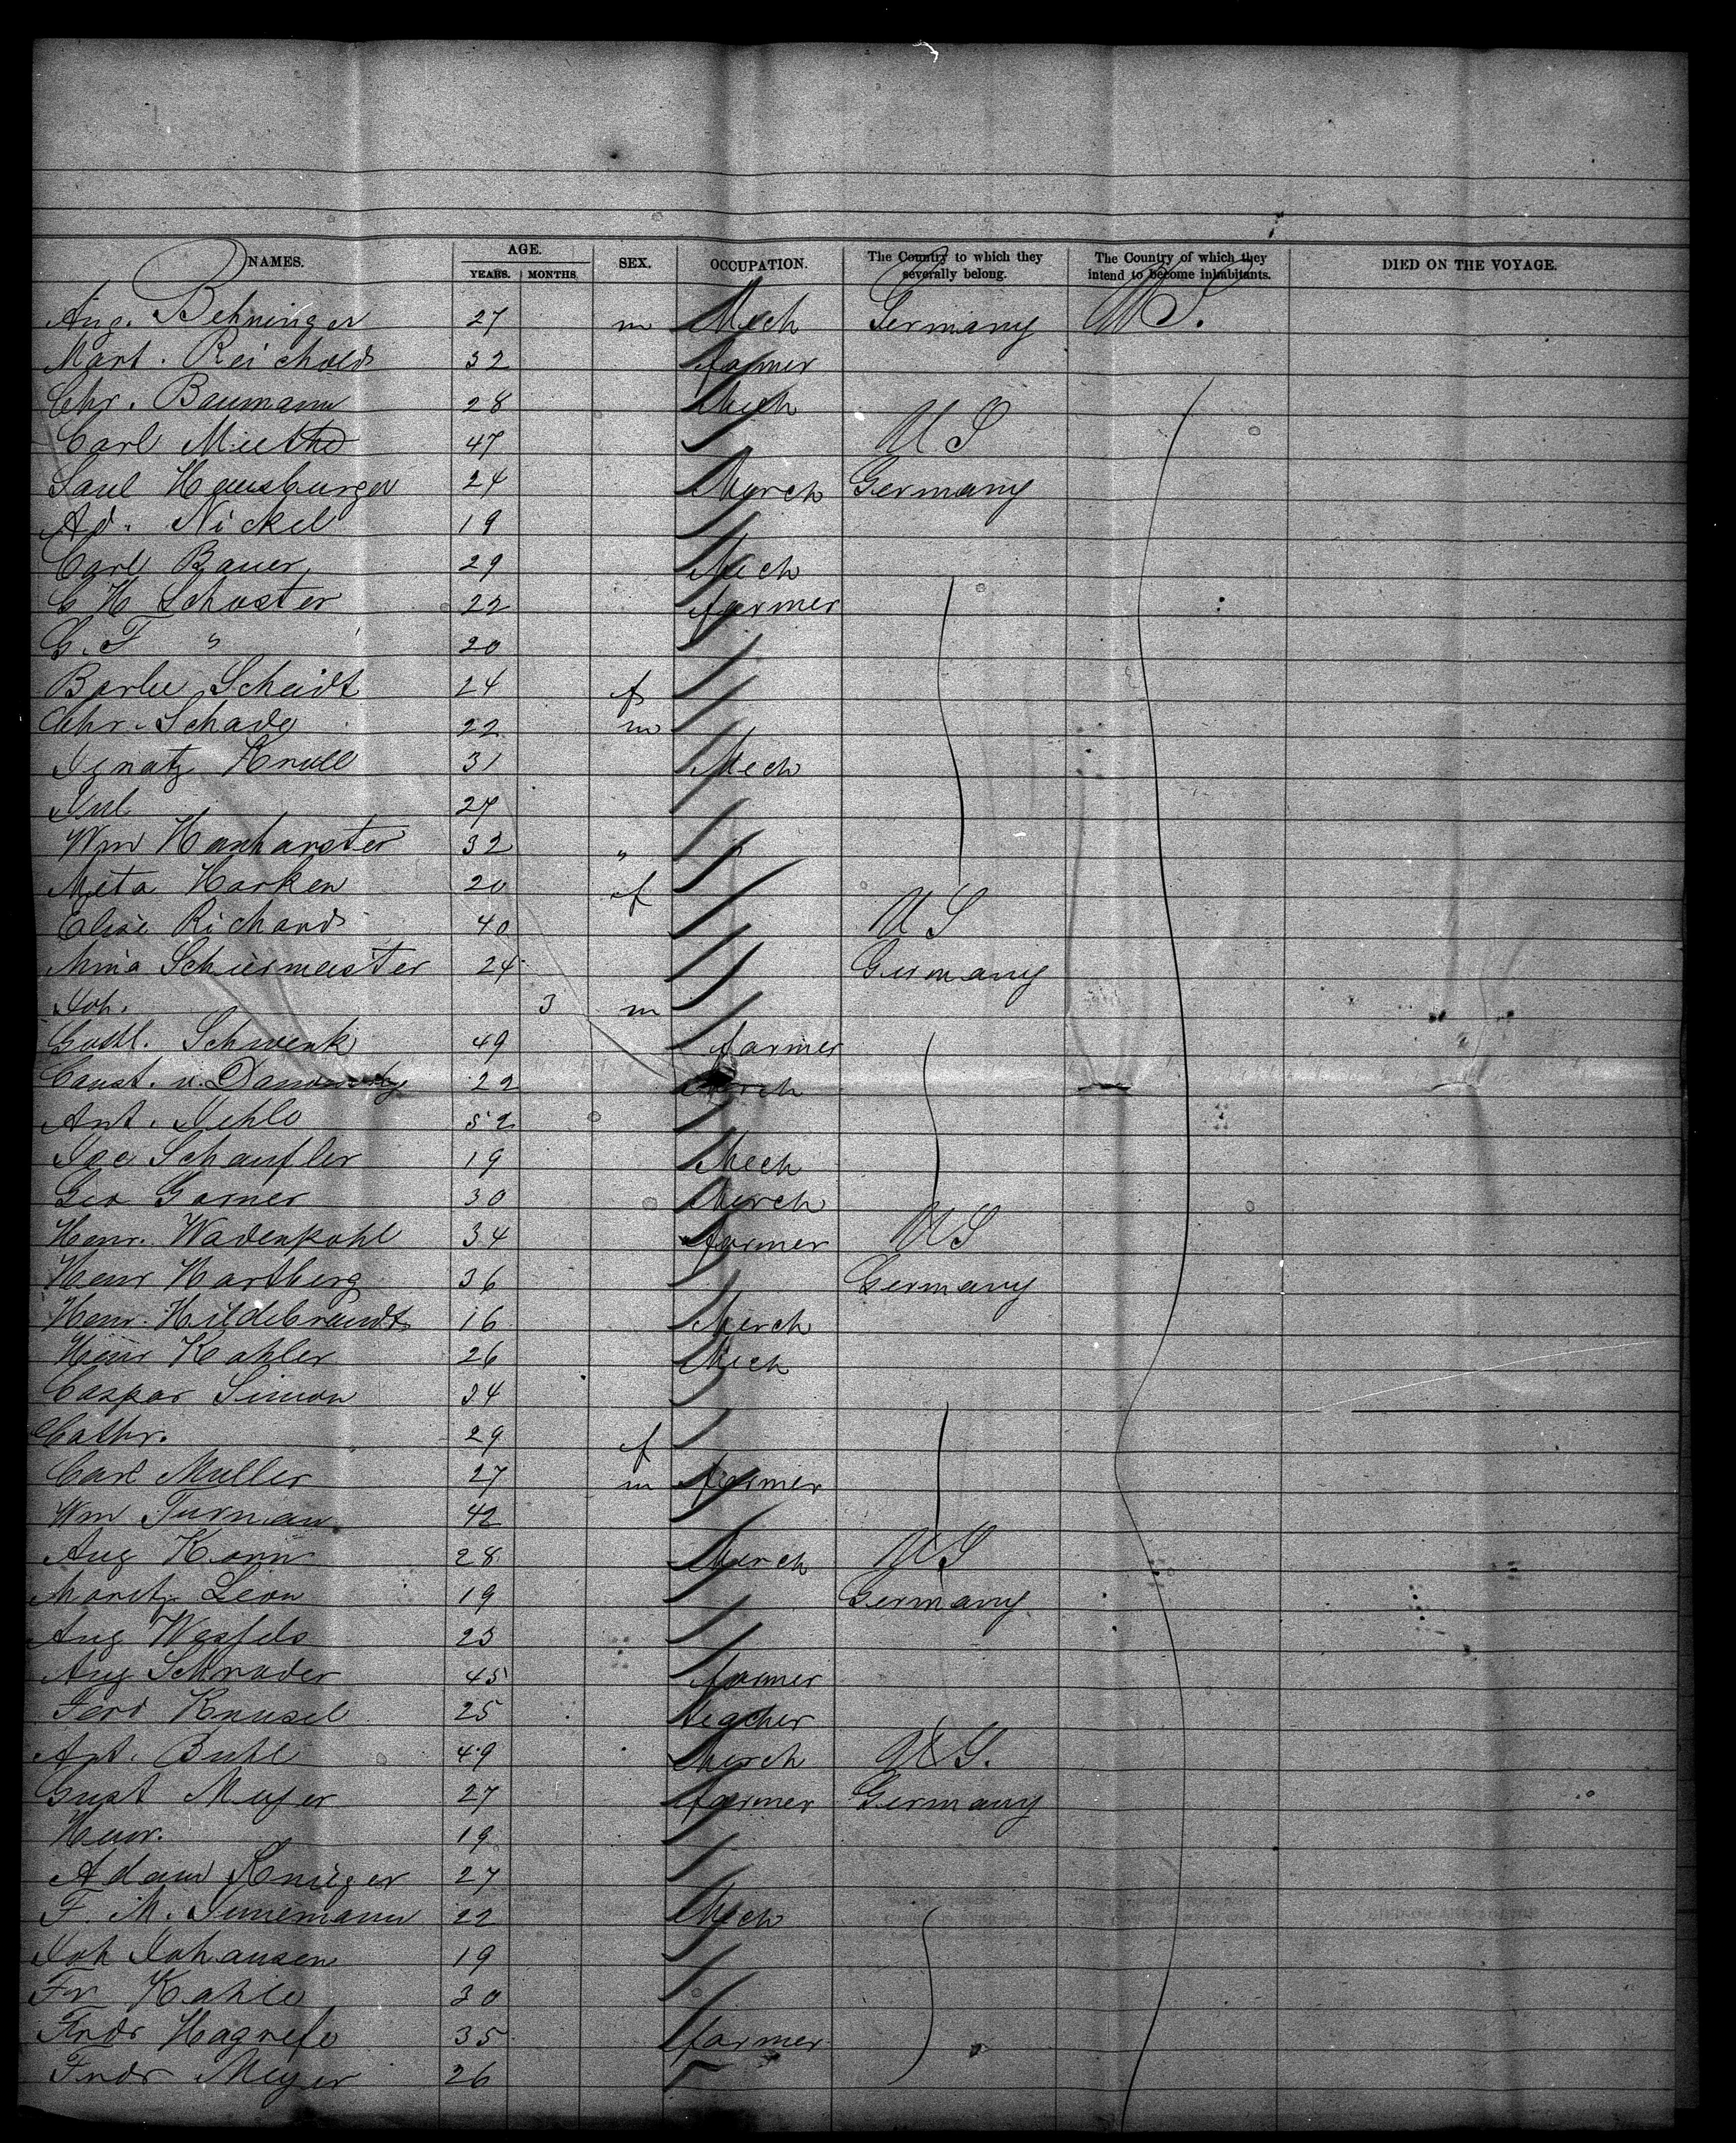 NAMES. AGE. SEX. OCCUPATION. The Country to which they severally belong. The Country of which they intend to become inhabitants. DIED ON THE VOYAGE.
YEARS. MONTHS
Aug. Behninger 27 m Mech Germany U S.
Mart. Reichold 32 farmer
Chr. Baumann 28 Mech
Carl Miethe 47 U S
Saul Hamburger 24 Merch Germany
Ad. Nickel 19
Carl Bauer 29 Mech
C H Schoster 22 farmer
G. F " 20
Scheidt 24 f
Chr. Schade 22 m
Ignatz Knoll 31 Mech
Jul 27
Wm 32 "
Meta Harken 20 f
Elise Richards 40 U S
Mina Schiermeister 24 Germany
Joh. 3 m
Gottl. Schwenk 49 farmer
Const. v. 22 Merch
Ant. 52
Joe Schaufler 19 Mech
Geo Garner 30 Merch
Henr. Wadenpohl 34 farmer U S
Henr Hartberg 36 Germany
Henr. Hildebrandt 16 Merch
Henr Kahler 26 Mech
Caspar Simon 34
Cathr. 29 f
Carl Muller 27 m farmer
Wm Turman 42
Aug Korn 28 Merch U S
Moritz Leon 19 Germany
Aug Wessels 23
Aug Schrader 45 farmer
Ferd Knusel 25 teacher
Ant. Buhl 49 Merch U S.
Gust Meyer 27 farmer Germany
Henr. 19
Adam Krueger 27
F. M. 22 Mech
Joh Johansen 19
Fr Kahle 30
Fredr Hagrefe 35 farmer
Fredr Meyer 26